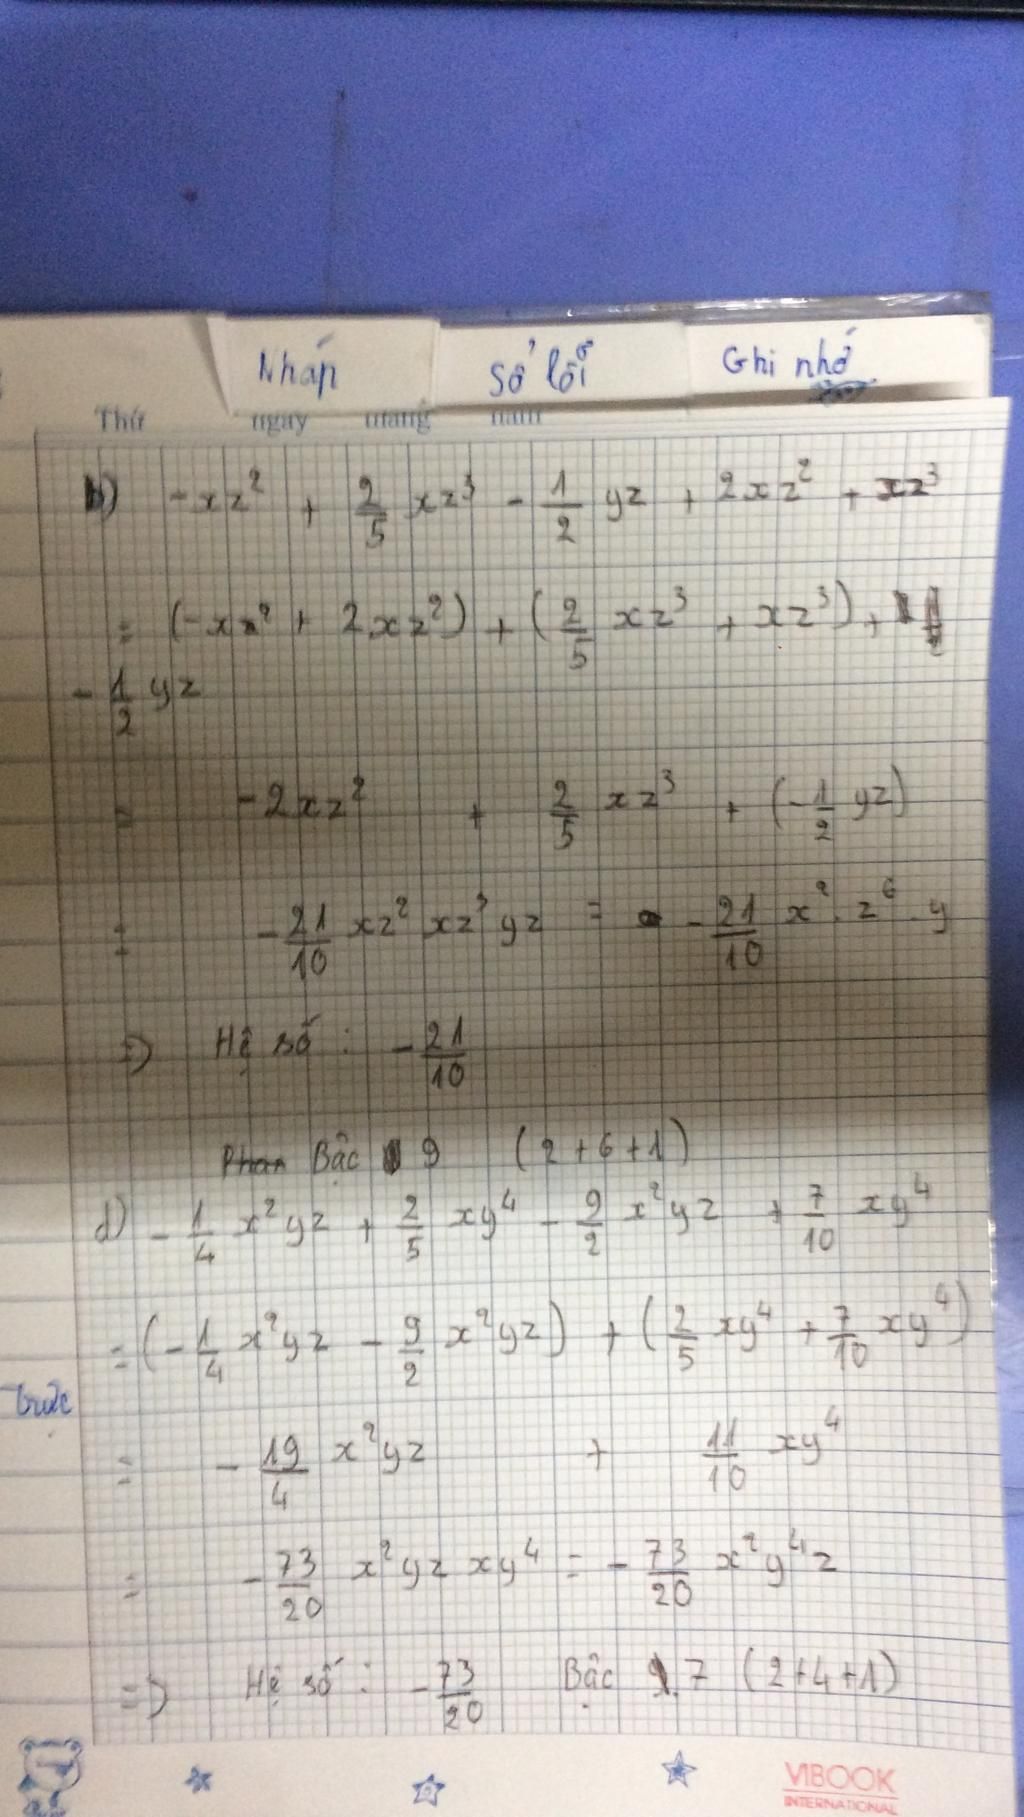 Nháp Sổ lỗi Ghi nhớ
Thứ ngày tháng năm
b) -xz² + 2/5 xz³ - 1/2 yz + 2xz² + xz³
= (-xz² + 2xz²) + (2/5 xz³ + xz³) +
- 1/2 yz
= -2xz² + 2/5 xz³ + (-1/2 yz)
= -21/10 xz² xz³ yz = - 21/10 x² . z⁶ . y
=) Hệ số : - 21/10
Bậc 9 (2+6+1)
d) - 1/4 x²yz + 2/5 xy⁴ - 9/2 x²yz + 7/10 xy⁴
= (-1/4 x²yz - 9/2 x²yz) + (2/5 xy⁴ + 7/10 xy⁴)
Trực
= - 19/4 x²yz + 11/10 xy⁴
= - 73/20 x²yz xy⁴ = - 73/20 x²y⁴z
=) Hệ số : - 73/20 Bậc 7 (2+4+1)
VIBOOK
INTERNATIONAL